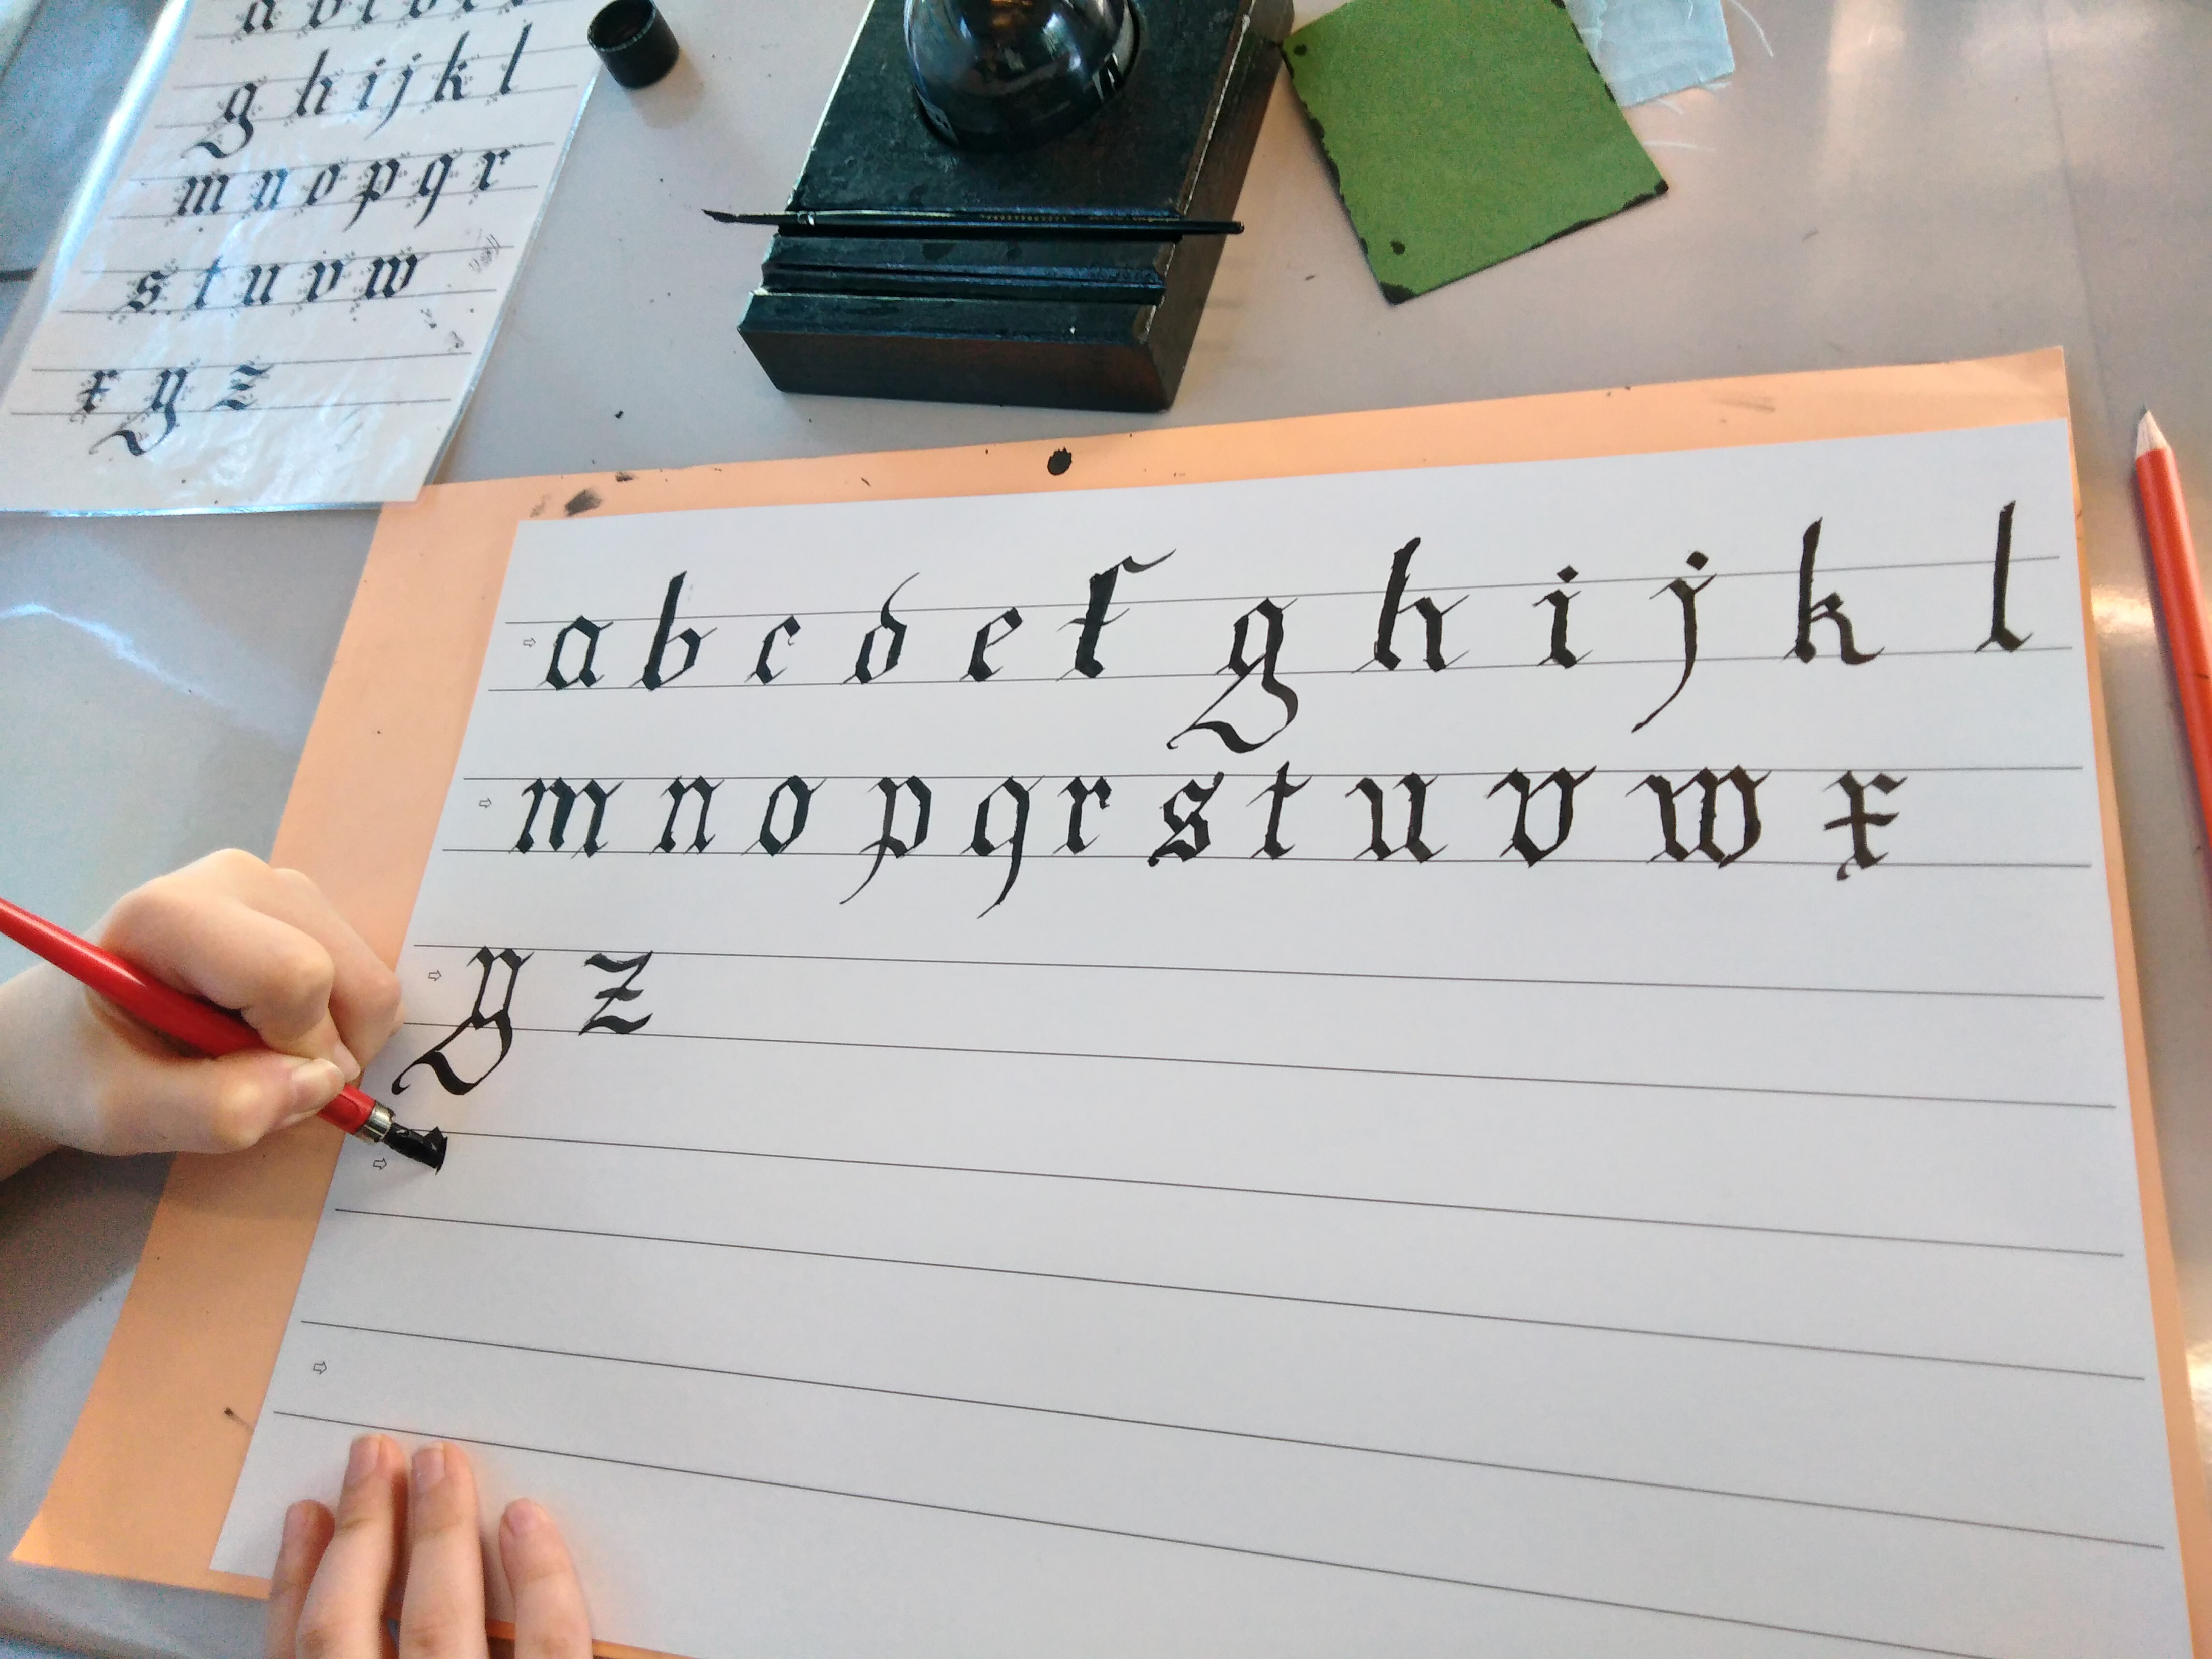 a b c d e f
g h i j k l
m n o p q r
s t u v w
x y z
a b c d e f g h i j k l
m n o p q r s t u v w x
y z